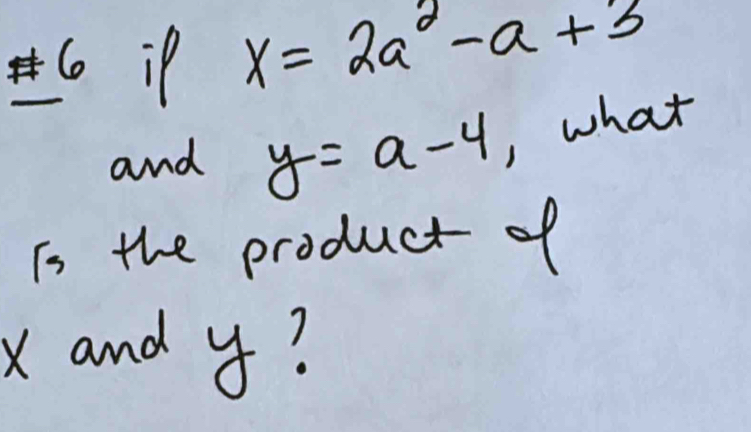 #6 if x = 2a² - a + 3
and y = a - 4, what
Is the product of
x and y?